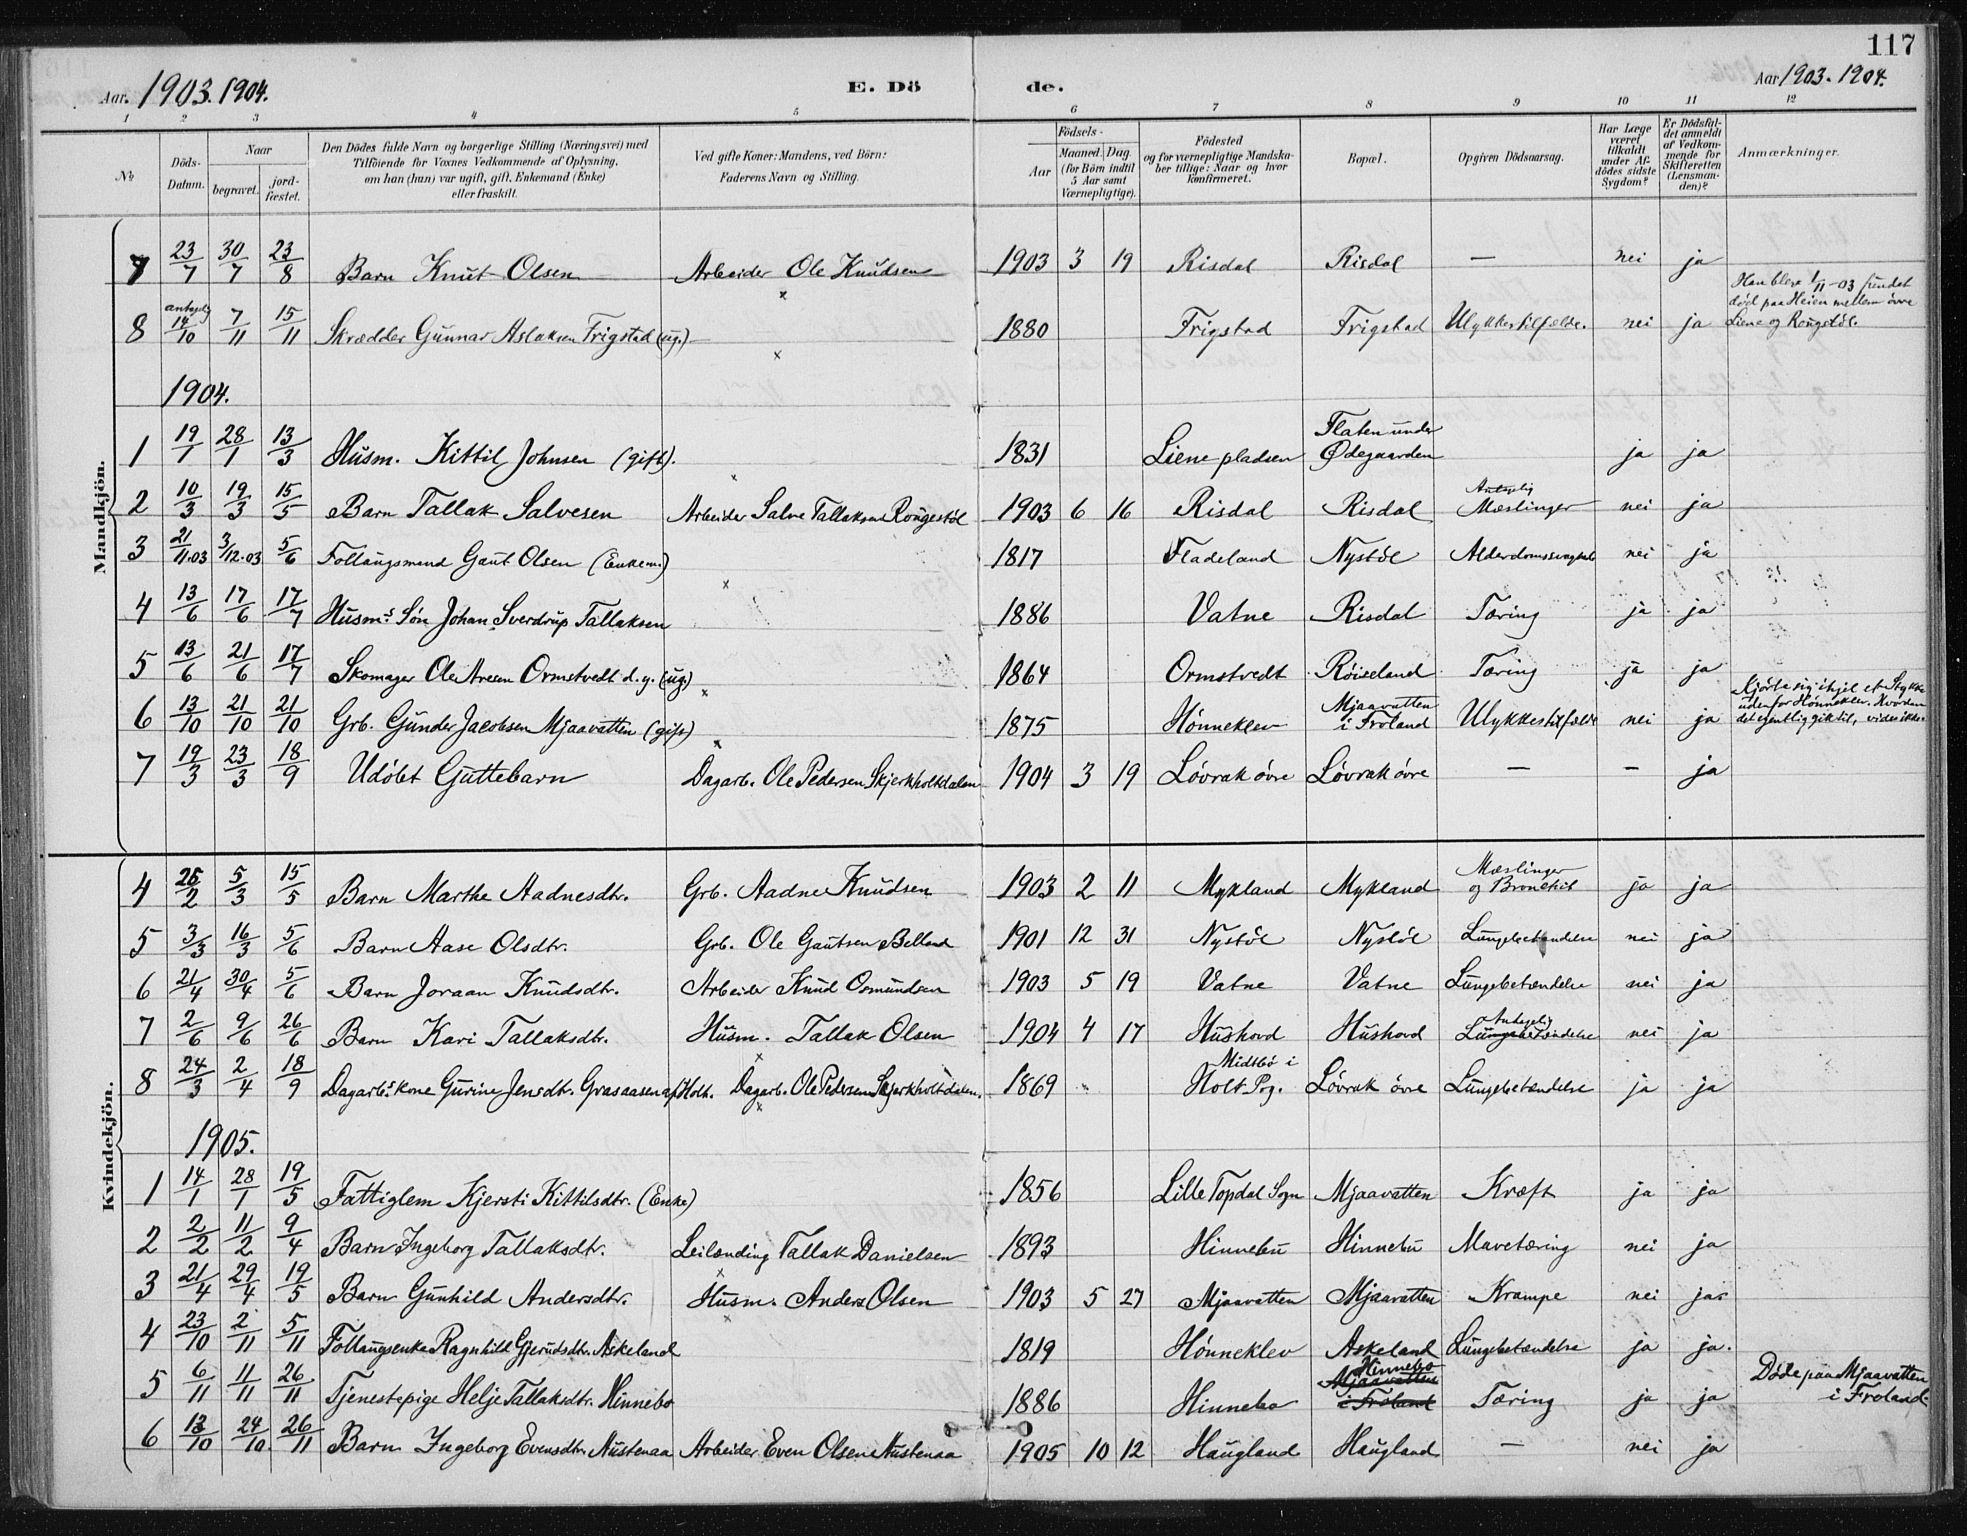 117
Aar. 1903. 1904. E. Dö de. Aar 1903. 1904.
1 2 3 4 5 6 7 8 9 10 11 12
№ Döds-Datum. Naar begravet. jord-fæstet. Den Dödes fulde Navn og borgerlige Stilling (Næringsvei) med Tilföiende for Voxnes Vedkommende af Oplysning, om han (hun) var ugift, gift, Enkemand (Enke) eller fraskilt. Ved gifte Koner: Mandens, ved Börn: Faderens Navn og Stilling. Födsels- Aar Maaned. Dag. (for Börn indtil 5 Aar samt Værnepligtige). Födested og for værnepligtige Mandskaber tillige: Naar og hvor konfirmeret. Bopæl. Opgiven Dödsaarsag. Har Læge været tilkaldt under Afdödes sidste Sygdom? Er Dödsfaldet anmeldt af Vedkommende for Skifteretten (Lensmanden)? Anmærkninger.
Mandkjön.
7 23/7 30/7 23/8 Barn Knut Olsen Arbeider Ole Knudsen 1903 3 19 Risdal Risdal — nei ja
8 antagelig 14/10 7/11 15/11 Skrædder Gunnar Aslaksen Frigstad (ug.) 1880 Frigstad Frigstad Ulykkestilfælde. nei ja Han blev 1/11-03 fundet død paa Heien mellem øvre Liene og Rougstøl.
1904.
1 19/1 28/1 13/3 Husm. Kittil Johnsen (gift). 1831 Liene pladsen Flaten under Ødegaarden ja ja
2 10/3 19/3 15/5 Barn Tallak Salvesen Arbeider Salve Tallaksen Rougestøl 1903 6 16 Risdal Risdal Antagelig Mæslinger nei ja
3 21/11.03 3/12.03 5/6 Follaugsmend Gaut Olsen (Enkem.) 1817 Fladeland Nystøl nei ja
4 13/6 17/6 17/7 Husm.s Søn Johan Sverdrup Tallaksen 1886 Vatne Risdal Tæring ja ja
5 13/6 21/6 17/7 Skomager Ole Aresen Ormstvedt d.y. (ug.) 1864 Ormstvedt Røiseland Tæring ja ja
6 13/10 21/10 21/10 Grb. Gunder Jacobsen Mjaavatten (gift) 1875 Hønneklev Mjaavatten i Froland Ulykkestilfælde nei ja Kjørte sig ihjel et Stykke udenfor Hønneklev. Hvordan det egentlig gik til, vides ikke.
7 19/3 23/3 18/9 Udøbt Guttebarn Dagarb. Ole Pedersen Skjerkholtdalen 1904 3 19 Løvrak øvre Løvrak øvre — — ja
Kvindekjön.
4 25/2 5/3 15/5 Barn Marthe Aadnesdtr. Grb. Aadne Knudsen 1903 2 11 Mykland Mykland Mæslinger og Bronchit ja ja
5 3/3 16/3 5/6 Barn Aase Olsdtr. Grb. Ole Gautsen Belland 1901 12 31 Nystøl Nystøl Lungebetændelse nei ja
6 21/4 30/4 5/6 Barn Joraan Knudsdtr. Arbeider Knud Osmundsen 1903 5 19 Vatne Vatne Lungebetændelse nei ja
7 2/6 9/6 26/6 Barn Kari Tallaksdtr. Husm. Tallak Olsen 1904 4 17 Hushovd Hushovd Antagelig Lungebetændelse nei ja
8 24/3 2/4 18/9 Dagarb.s kone Gurine Jensdtr. Grasaasen af Holt. Dagarb. Ole Pedersen Skjerkholtdalen. 1869 Midtbø i Holt Pg. Løvrak øvre Lungebetændelse ja ja
1905.
1 14/1 28/1 19/5 Fattiglem Kjersti Kittilsdtr. (Enke) 1856 Lille Topdal Sogn Mjaavatten Kræft ja ja
2 2/2 11/2 9/4 Barn Ingeborg Tallaksdtr. Leilænding Tallak Danielsen 1893 Hinnebu Hinnebu Mavetæring nei ja
3 21/4 29/4 19/5 Barn Gunhild Andersdtr. Husm. Anders Olsen 1903 5 27 Mjaavatten Mjaavatten Krampe nei ja
4 23/10 2/11 5/11 Follaugsenke Ragnhild Gjerudsdtr. Askeland 1819 Hønneklev Askeland Lungebetændelse ja ja.
5 6/11 11/11 26/11 Tjenestepige Helje Tallaksdtr. Hinnebo 1886 Hinnebo Hinnebo Mjaavatten i Froland Tæring ja ja Døde paa Mjaavatten i Froland.
6 13/10 24/10. 26/11 Barn Ingeborg Evensdtr. Austenaa Arbeider Even Olsen Austenaa 1905 10 12 Haugland Haugland — nei ja